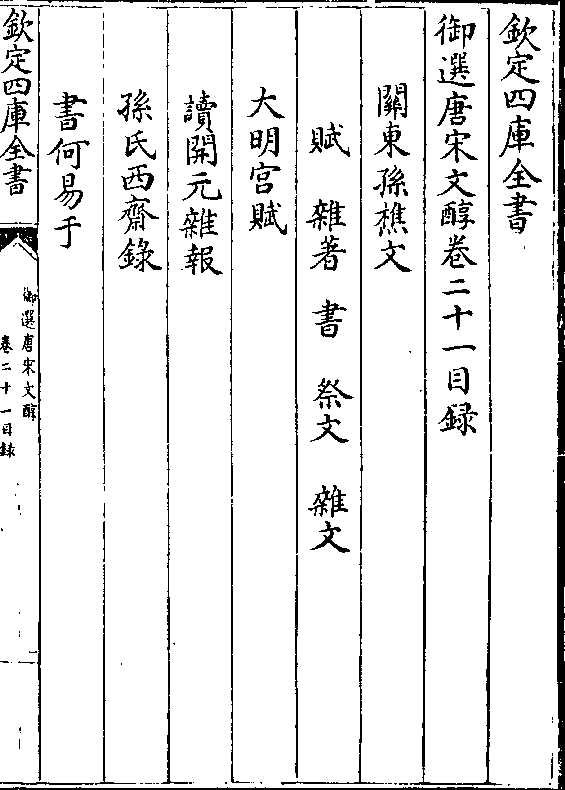 欽定四庫全書
御選唐宋文醇卷二十一目録
關東孫樵文
賦 雜著 書 祭文 雜文
大明宫賦
讀開元雜報
孫氏西齋錄
書何易于
欽定四庫全書
御選唐宋文醇
卷二十一目録
一